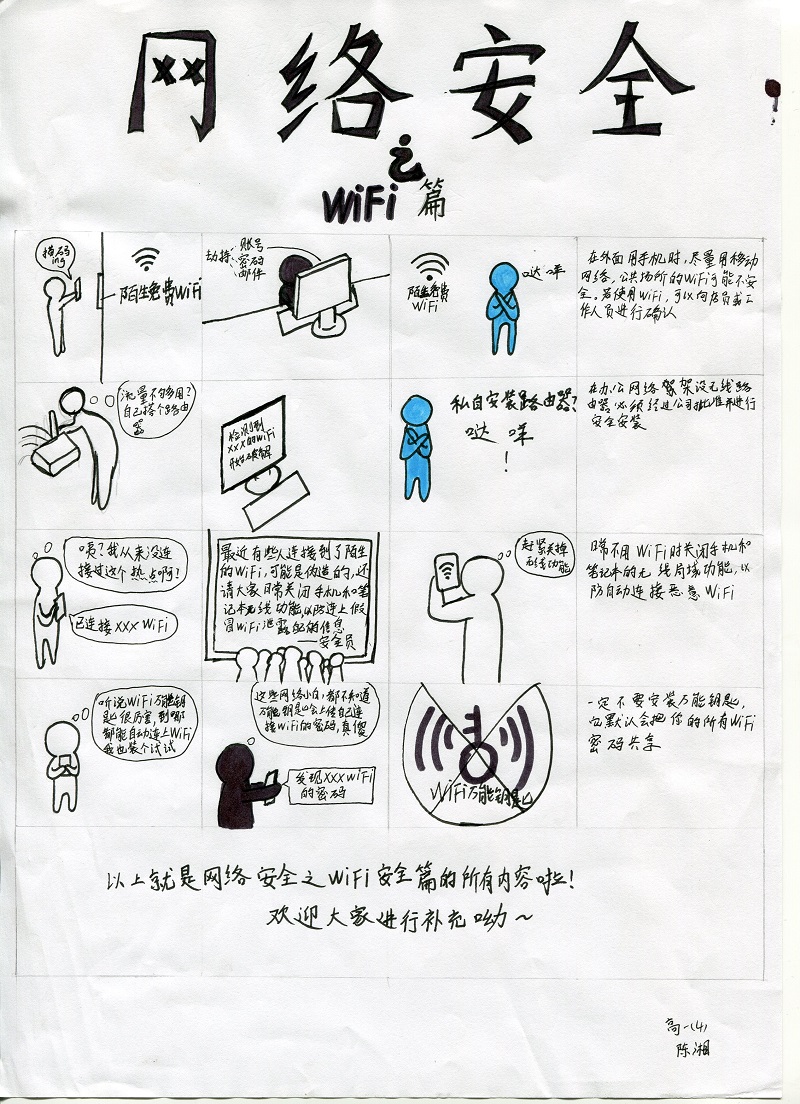 网络安全
之
WiFi篇
摸码
ing
陌生免费WiFi
劫持
账号
密码
邮件
陌生免费
WiFi
哒咩
在外面用手机时，尽量用移动
网络，公共场所的WiFi可能不安
全。若使用WiFi，可以向店员或工
作人员进行确认
流量不够用？
自己搭个路由
器
检测到
XXX的WiFi
开始破解
私自安装路由器？
哒咩
！
在办公网络架设无线路
由器必须经过公司批准并进行
安全安装
咦？我从来没连
接过这个热点啊！
已连接XXX WiFi
最近有些人连接到了陌生
的WiFi，可能是伪造的，还
请大家日常关闭手机和笔
记本无线功能，以防连上假
冒WiFi泄露自己的信息
——安全员
赶紧关掉
无线功能
日常不用WiFi时关闭手机和
笔记本的无线局域功能，以
防自动连接恶意WiFi
听说WiFi万能钥
匙很厉害，到哪
都能自动连上WiFi
我也装个试试
这些网络小白，都不知道
万能钥匙会上传自己连
接WiFi的密码，真傻
发现XXXWiFi
的密码
WiFi万能钥匙
一定不要安装万能钥匙，
它默认会把你的所有WiFi
密码共享
以上就是网络安全之WiFi安全篇的所有内容啦！
欢迎大家进行补充呦～
高一(4)
陈湘